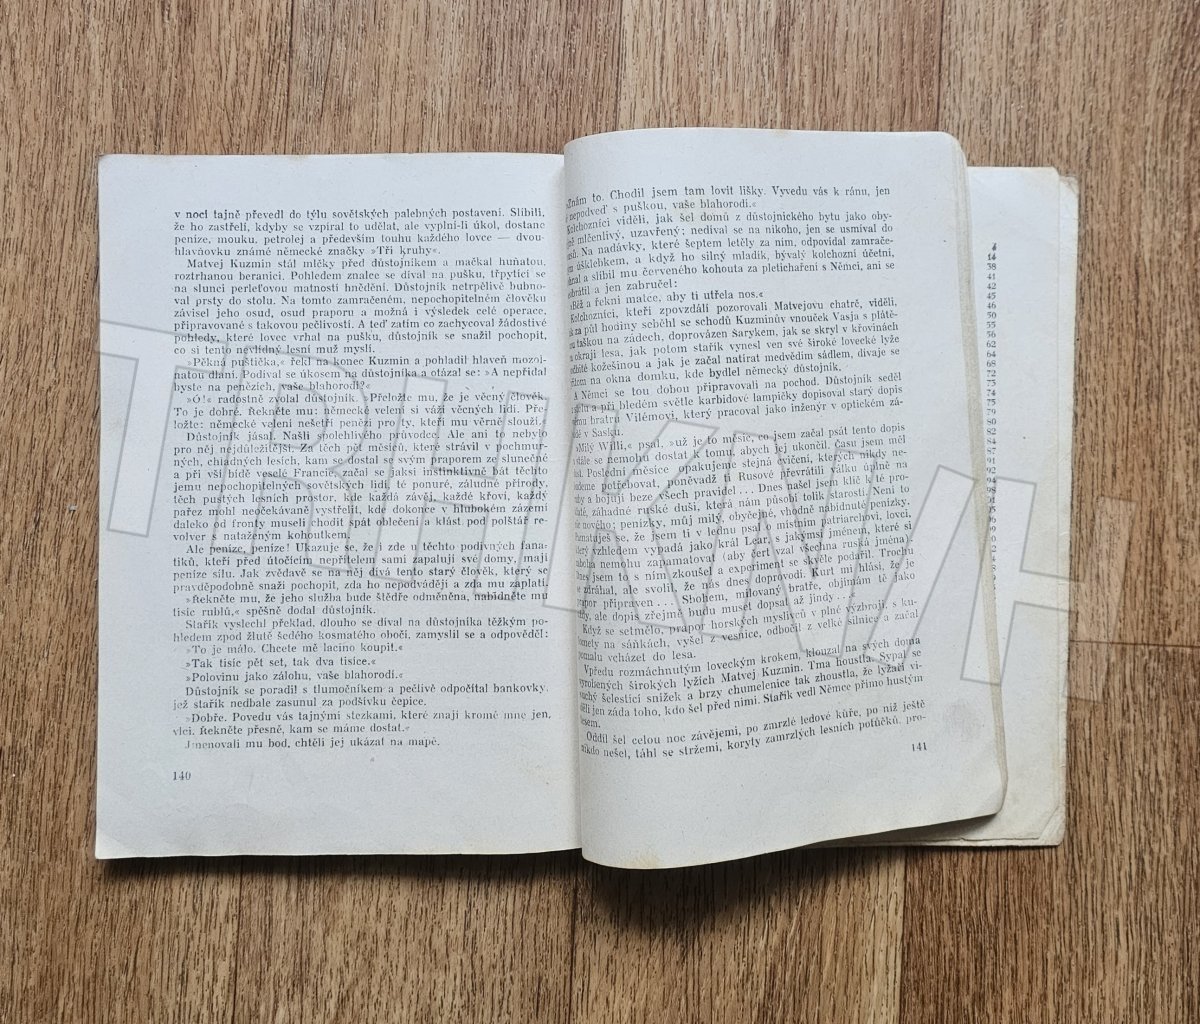 v noci tajně převedl do týlu sovětských palebných postavení. Slíbili,
že ho zastřelí, kdyby se vzpíral to udělat, ale vyplní-li úkol, dostane
peníze, mouku, petrolej a především touhu každého lovce — dvou-
hlavňovku známé německé značky »Tři kruhy«.
Matvej Kuzmin stál mlčky před důstojníkem a mačkal huňatou,
roztrhanou beranici. Pohledem znalce se díval na pušku, třpytící se
na slunci perleťovou matností hnědění. Důstojník netrpělivě bubno-
val prsty do stolu. Na tomto zamračeném, nepochopitelném člověku
závisel jeho osud, osud praporu a možná i výsledek celé operace,
připravované s takovou pečlivostí. A teď zatím co zachycoval žádostivé
pohledy, které lovec vrhal na pušku, důstojník se snažil pochopit,
co si tento nevlídný lesní muž myslí.
»Pěkná puštička,« řekl na konec Kuzmin a pohladil hlaveň mozol-
natou dlaní. Podíval se úkosem na důstojníka a otázal se: »A nepřidal
byste na penězích, vaše blahorodí?«
»Ó!« radostně zvolal důstojník. »Přeložte mu, že je věcný člověk.
To je dobré. Řekněte mu: německé velení si váží věcných lidí. Pře-
ložte: německé velení nešetří penězi pro ty, kteří mu věrně slouží.«
Důstojník jásal. Našli spolehlivého průvodce. Ale ani to nebylo
pro něj nejdůležitější. Za těch pět měsíců, které strávil v pochmur-
ných, chladných lesích, kam se dostal se svým praporem ze slunečné
a při vší bídě veselé Francie, začal se jaksi instinktivně bát těchto
jemu nepochopitelných sovětských lidí, té ponuré, záludné přírody,
těch pustých lesních prostor, kde každá závěj, každé křoví, každý
pařez mohl neočekávaně vystřelit, kde dokonce v hlubokém zázemí
daleko od fronty museli chodit spát oblečeni a klást pod polštář re-
volver s nataženým kohoutkem.
Ale peníze, peníze! Ukazuje se, že i zde u těchto podivných fana-
tiků, kteří před útočícím nepřítelem sami zapalují své domy, mají
peníze sílu. Jak zvědavě se na něj dívá tento starý člověk, který se
pravděpodobně snaží pochopit, zda ho nepodvádějí a zda mu zaplatí.
»Řekněte mu, že jeho služba bude štědře odměněna, nabídněte mu
tisíc rublů,« spěšně dodal důstojník.
Stařík vyslechl překlad, dlouho se díval na důstojníka těžkým po-
hledem zpod žlutě šedého kosmatého obočí, zamyslil se a odpověděl:
»To je málo. Chcete mě lacino koupit.«
»Tak tisíc pět set, tak dva tisíce.«
»Polovinu jako zálohu, vaše blahorodí.«
Důstojník se poradil s tlumočníkem a pečlivě odpočítal bankovky,
jež stařík nedbale zasunul za podšívku čepice.
»Dobře. Povedu vás tajnými stezkami, které znají kromě mne jen
vlci. Řekněte přesně, kam se máme dostat.«
Jmenovali mu bod, chtěli jej ukázat na mapě.
140
»Znám to. Chodil jsem tam lovit lišky. Vyvedu vás k ránu, jen
nepodveď s puškou, vaše blahorodí.«
Kolchozníci viděli, jak šel domů z důstojnického bytu jako oby-
mlčenlivý, uzavřený; nedíval se na nikoho, jen se usmíval do
Na nadávky, které šeptem letěly za ním, odpovídal zamrače-
úšklebkem, a když ho silný mladík, bývalý kolchozní účetní,
a slíbil mu červeného kohouta za pletichaření s Němci, ani se
a jen zabručel:
»Běž a řekni matce, aby ti utřela nos.«
Kolchozníci, kteří zpovzdálí pozorovali Matvejovu chatrč, viděli,
za půl hodiny seběhl se schodů Kuzminův vnouček Vasja s plátě-
taškou na zádech, doprovázen Šarykem, jak se skryl v křovinách
okraji lesa, jak potom stařík vynesl ven své široké lovecké lyže
kožešinou a jak je začal natírat medvědím sádlem, dívaje se
na okna domku, kde bydlel německý důstojník.
A Němci se tou dobou připravovali na pochod. Důstojník seděl
stolu a při bledém světle karbidové lampičky dopisoval starý dopis
bratru Vilémovi, který pracoval jako inženýr v optickém zá-
v Sasku.
»Milý Willi,« psal, »už je to měsíc, co jsem začal psát tento dopis
stále se nemohu dostat k tomu, abych jej ukončil. Času jsem měl
Poslední měsíce opakujeme stejná cvičení, kterých nikdy ne-
budeme potřebovat, poněvadž ti Rusové převrátili válku úplně na
a bojují beze všech pravidel... Dnes našel jsem klíč k té pro-
záhadné ruské duši, která nám působí tolik starostí. Není to
nového; penízky, můj milý, obyčejné, vhodně nabídnuté penízky.
se, že jsem ti v lednu psal o místním patriarchovi, lovci,
vzhledem vypadá jako král Lear, s jakýmsi jménem, které si
nemohu zapamatovat (aby čert vzal všechna ruská jména).
Dnes jsem to s ním zkoušel a experiment se skvěle podařil. Trochu
zdráhal, ale svolil, že nás dnes doprovodí. Kurt mi hlásí, že je
prapor připraven... Sbohem, milovaný bratře, objímám tě jako
ale dopis zřejmě budu muset dopsat až jindy...«
Když se setmělo, prapor horských myslivců v plné výzbroji, s ku-
lomety na sáňkách, vyšel z vesnice, odbočil z velké silnice a začal
pomalu vcházet do lesa.
Vpředu rozmáchnutým loveckým krokem, klouzal na svých doma
vyrobených širokých lyžích Matvej Kuzmin. Tma houstla. Sypal se
suchý šelestící snížek a brzy chumelenice tak zhoustla, že lyžaři vi-
děli jen záda toho, kdo šel před nimi. Stařík vedl Němce přímo hustým
lesem.
Oddíl šel celou noc závějemi, po zmrzlé ledové kůře, po níž ještě
nikdo nešel, táhl se stržemi, koryty zamrzlých lesních potůčků, pro-
141
38
41
42
45
46
50
55
56
62
64
68
72
73
74
79
80
82
84
87
91
92
94
98
TRHKNIH